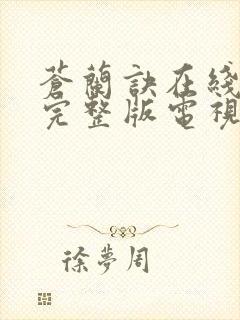 蒼蘭訣在綫
完整版電視
徐夢周